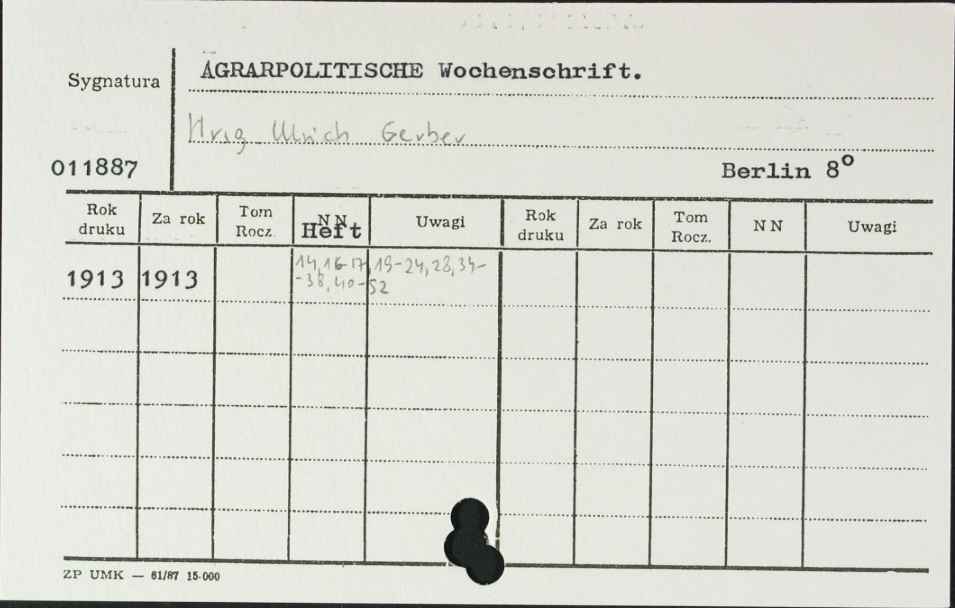 Sygnatura
AGRARPOLITISCHE Wochenschrift.
Hrsg. Ulrich Gerber
011887
Berlin 8°
Rok druku Za rok Tom Rocz. NN Heft Uwagi Rok druku Za rok Tom Rocz. NN Uwagi
1913 1913 14, 16-17, 19-24, 28, 34-
-38, 40-52
ZP UMK — 61/87 15·000